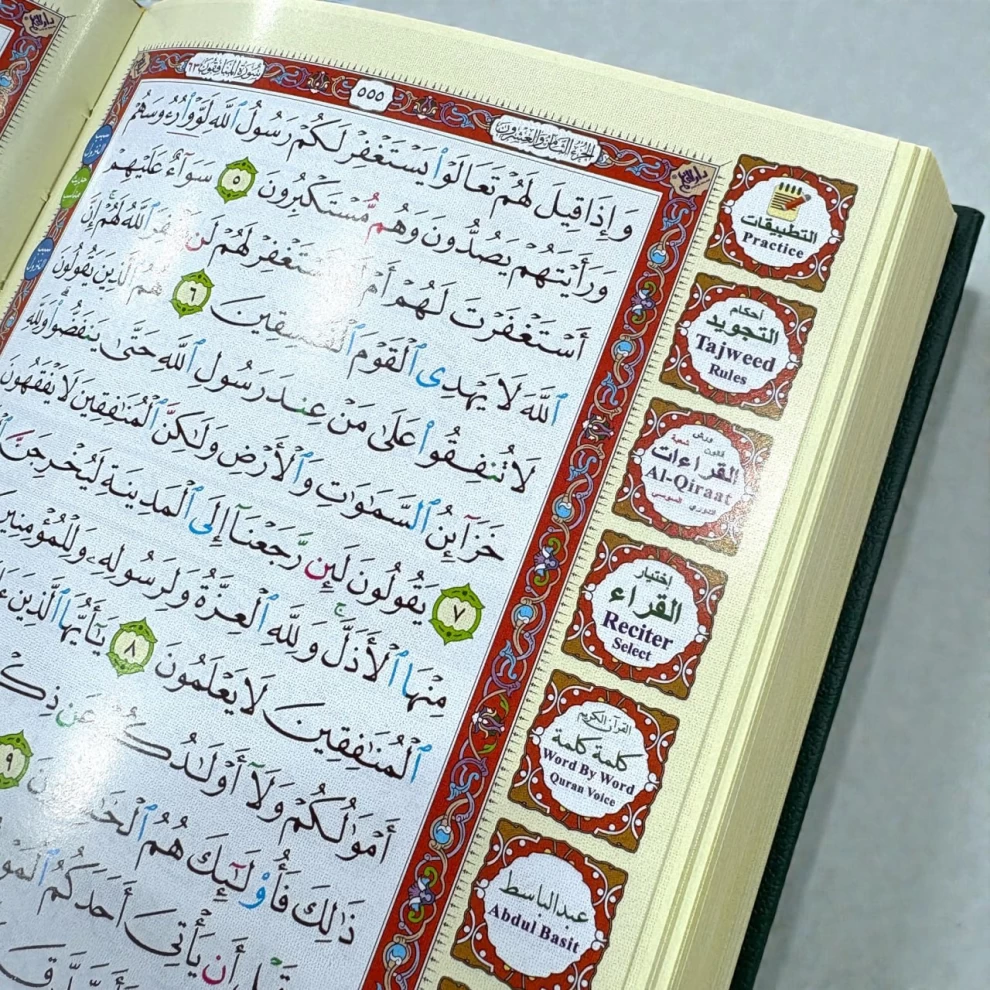 سُورَةُ المُنَافِقُونَ ٦٣
٥٥٥
الجُزْءُ الثَّامِنُ وَالعِشْرُونَ
وَإِذَا قِيلَ لَهُمْ تَعَالَوْا۟ يَسْتَغْفِرْ لَكُمْ رَسُولُ ٱللَّهِ لَوَّوْا۟ رُءُوسَهُمْ
وَرَأَيْتَهُمْ يَصُدُّونَ وَهُم مُّسْتَكْبِرُونَ ٥ سَوَآءٌ عَلَيْهِمْ
أَسْتَغْفَرْتَ لَهُمْ أَمْ تَسْتَغْفِرْ لَهُمْ لَن يَغْفِرَ ٱللَّهُ لَهُمْ إِنَّ
ٱللَّهَ لَا يَهْدِى ٱلْقَوْمَ ٱلْفَٰسِقِينَ ٦ هُمُ ٱلَّذِينَ يَقُولُونَ
لَا تُنفِقُوا۟ عَلَىٰ مَنْ عِندَ رَسُولِ ٱللَّهِ حَتَّىٰ يَنفَضُّوا۟ وَلِلَّهِ
خَزَآئِنُ ٱلسَّمَٰوَٰتِ وَٱلْأَرْضِ وَلَٰكِنَّ ٱلْمُنَٰفِقِينَ لَا يَفْقَهُونَ
٧ يَقُولُونَ لَئِن رَّجَعْنَآ إِلَى ٱلْمَدِينَةِ لَيُخْرِجَنَّ
مِنْهَا ٱلْأَذَلَّ وَلِلَّهِ ٱلْعِزَّةُ وَلِرَسُولِهِۦ وَلِلْمُؤْمِنِينَ
ٱلْمُنَٰفِقِينَ لَا يَعْلَمُونَ ٨ يَٰٓأَيُّهَا ٱلَّذِينَ
أَمْوَٰلُكُمْ وَلَآ أَوْلَٰدُكُمْ عَن
ذَٰلِكَ فَأُو۟لَٰٓئِكَ هُمُ ٩
قَبْلِ أَن يَأْتِىَ أَحَدَكُمُ ٱلْمَوْتُ
التطبيقات
Practice
أحكام
التجويد
Tajweed
Rules
ورش
قالون شعبة
القراءات
Al-Qiraat
الدوري السوسي
إختيار
القراء
Reciter
Select
القرآن الكريم
كلمة كلمة
Word By Word
Quran Voice
عبدالباسط
Abdul Basit